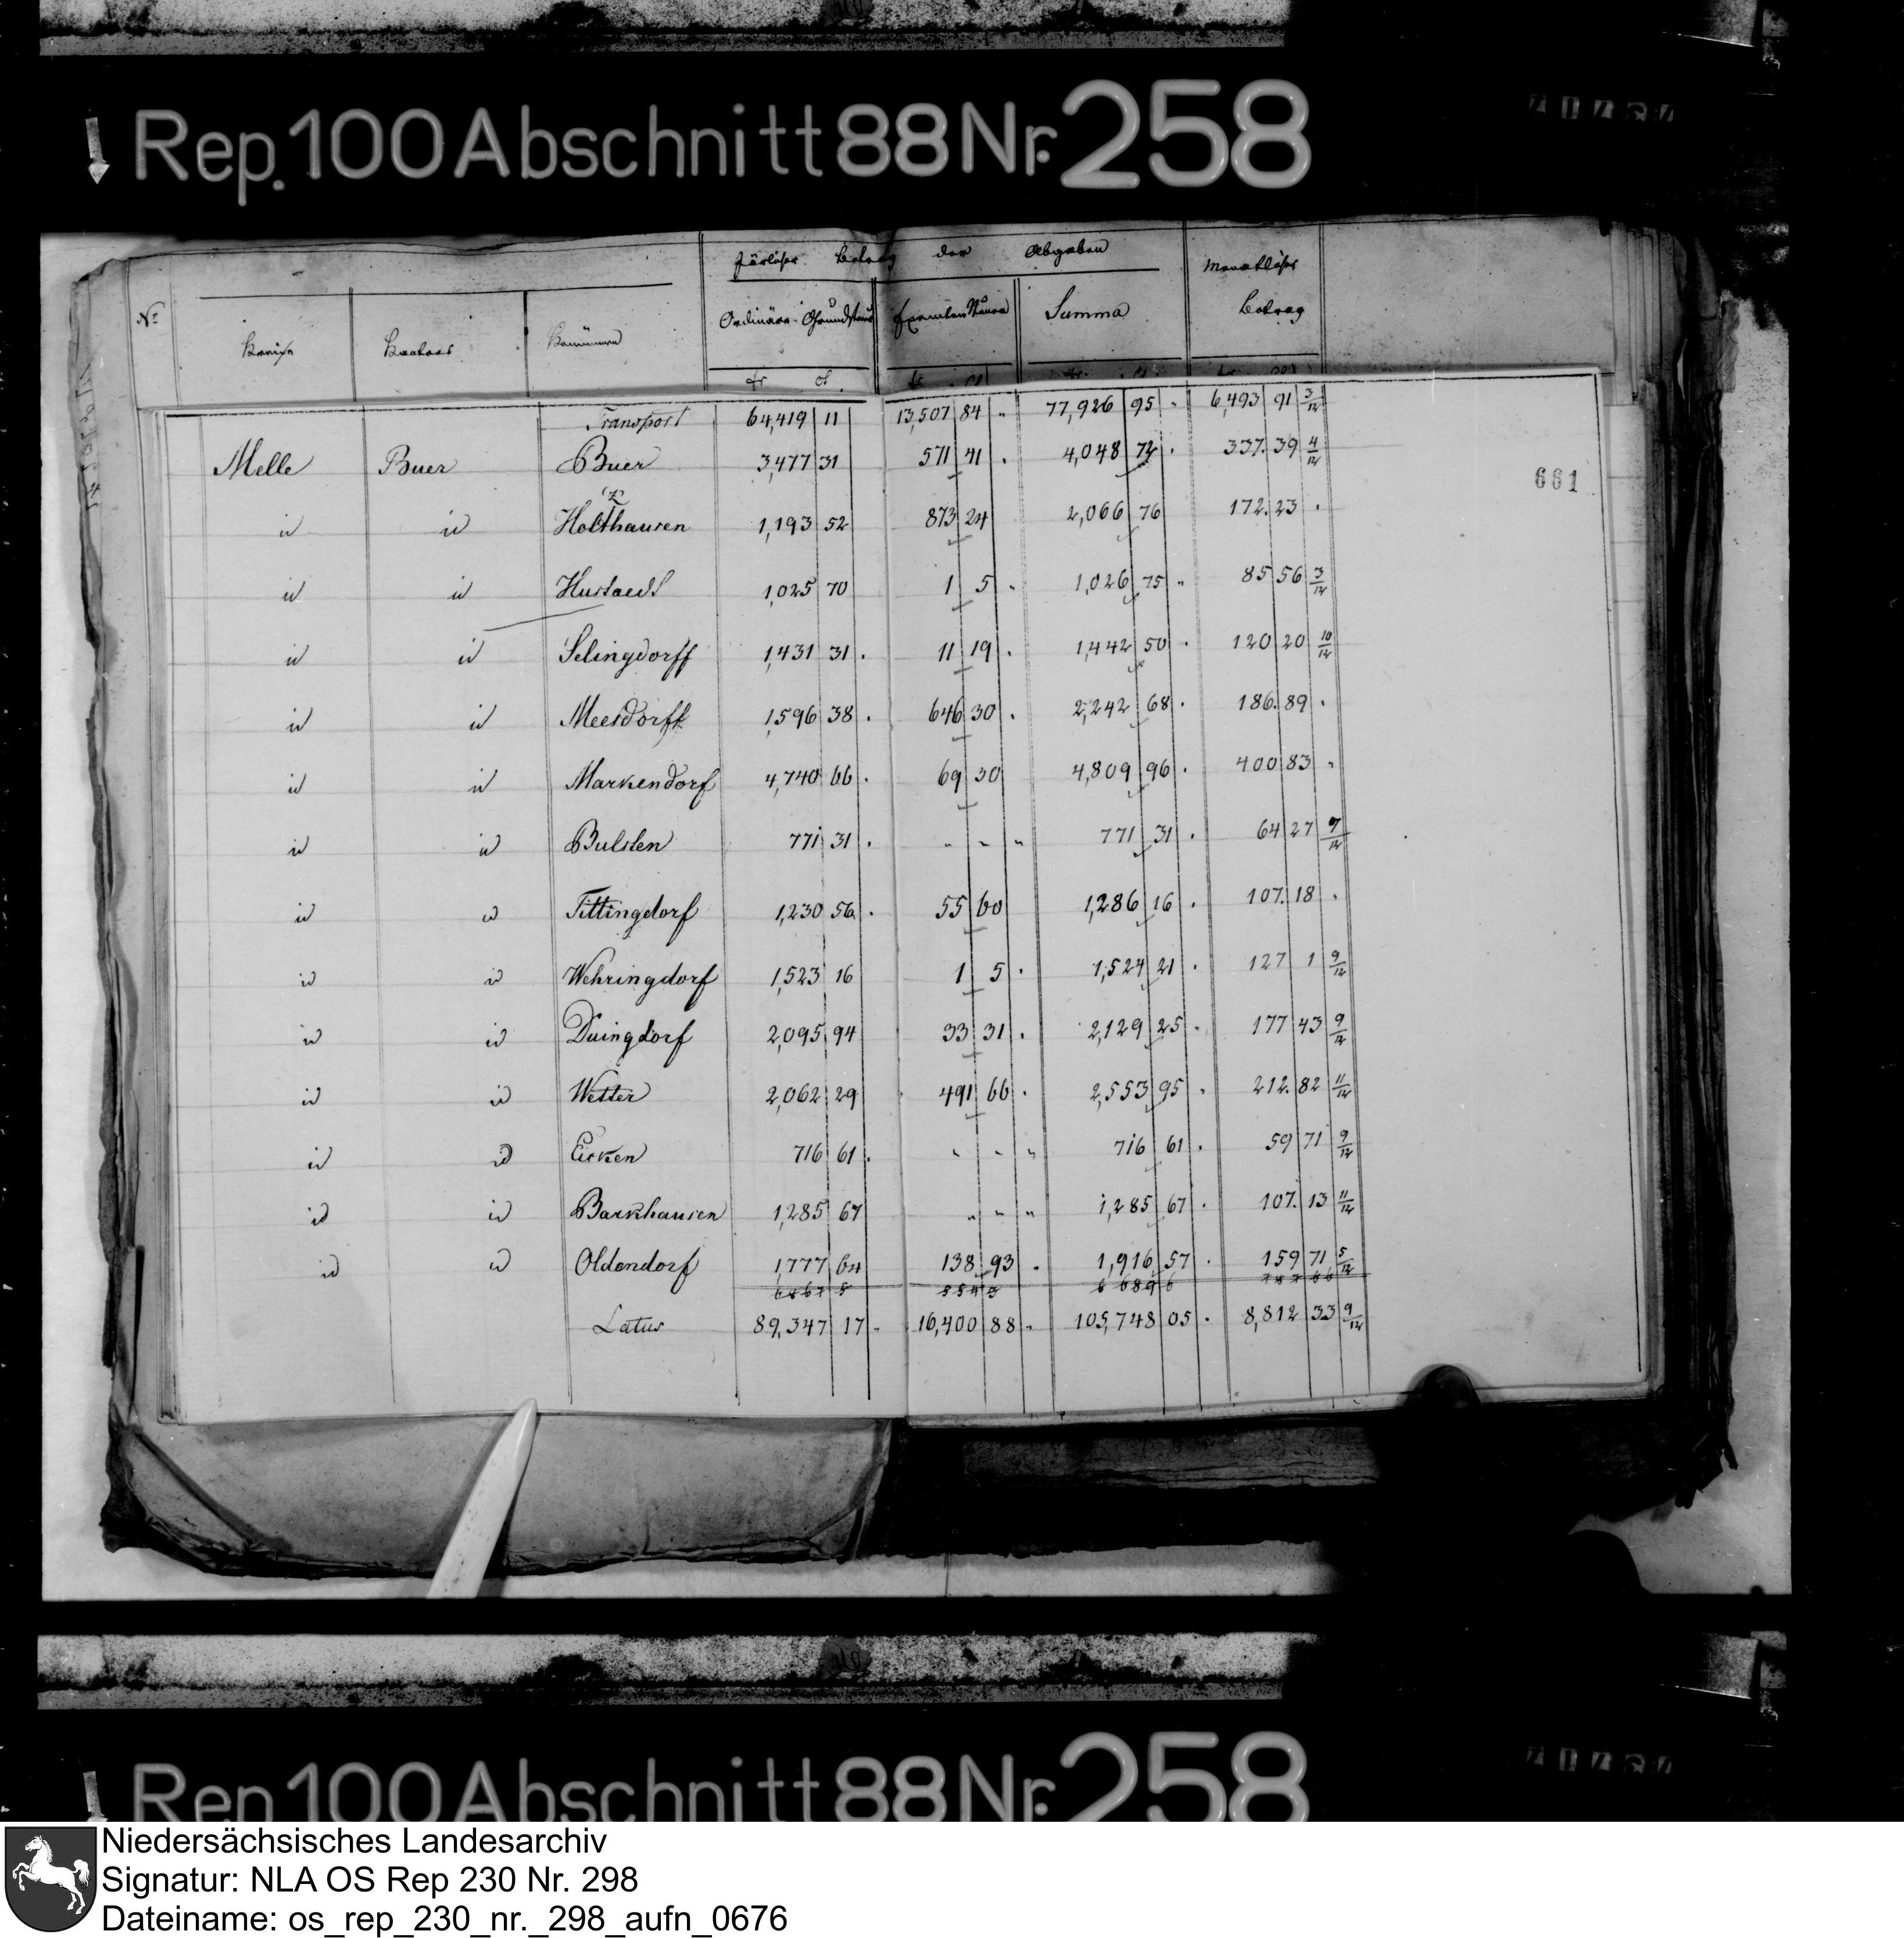 Rep. 100 Abschnitt 88 Nr. 258
Järliche Betrag der Abgaben Monatlicher
No Kreise Kantons Kommunen Ordinäre Grundsteuer Exemten Steuer Summa Betrag
fr ct fr ct fr ct fr ct
Transport 64,419 11 13,507 84 " 77,926 95 " 6,493 91 3/12
Melle Buer Buer 3,477 31 571 41 . 4,048 72 . 337. 39 4/12
661
id id Holthausen 1,193 52 873 24 2,066 76 172. 23 .
id id Hustaedt 1,025 70 1 5 " 1,026 75 " 85 56 3/12
id id Selingdorff 1,431 31 . 11 19 . 1,442 50 . 120 20 10/12
id id Meesdorff 1,596 38 . 646 30 . 2,242 68 . 186. 89 .
id id Markendorf 4,740 66 . 69 30 4,809 96 . 400 83 "
id id Bulsten 771 31 . " " " 771 31 . 64 27 7/12
id id Tittingdorf 1,230 56 . 55 60 1,286 16 . 107. 18 .
id id Wehringdorf 1,523 16 1 5 . 1,524 21 . 127 1 9/12
id id Duingdorf 2,095 94 33 31 . 2,129 25 " 177 43 9/12
id id Wetter 2,062 29 491 66 . 2,553 95 " 212. 82 11/12
id id Eicken 716 61 . " " " 716 61 . 59 71 9/12
id id Barkhausen 1,285 67 " " " 1,285 67 . 107. 13 11/12
id id Oldendorf 1,777 64 138 93 . 1,916 57 . 159 71 5/12
Latus 89,347 17 " 16,400 88 " 105,748 05 . 8,812 33 9/12
Rep. 100 Abschnitt 88 Nr. 258
Niedersächsisches Landesarchiv
Signatur: NLA OS Rep 230 Nr. 298
Dateiname: os_rep_230_nr._298_aufn_0676